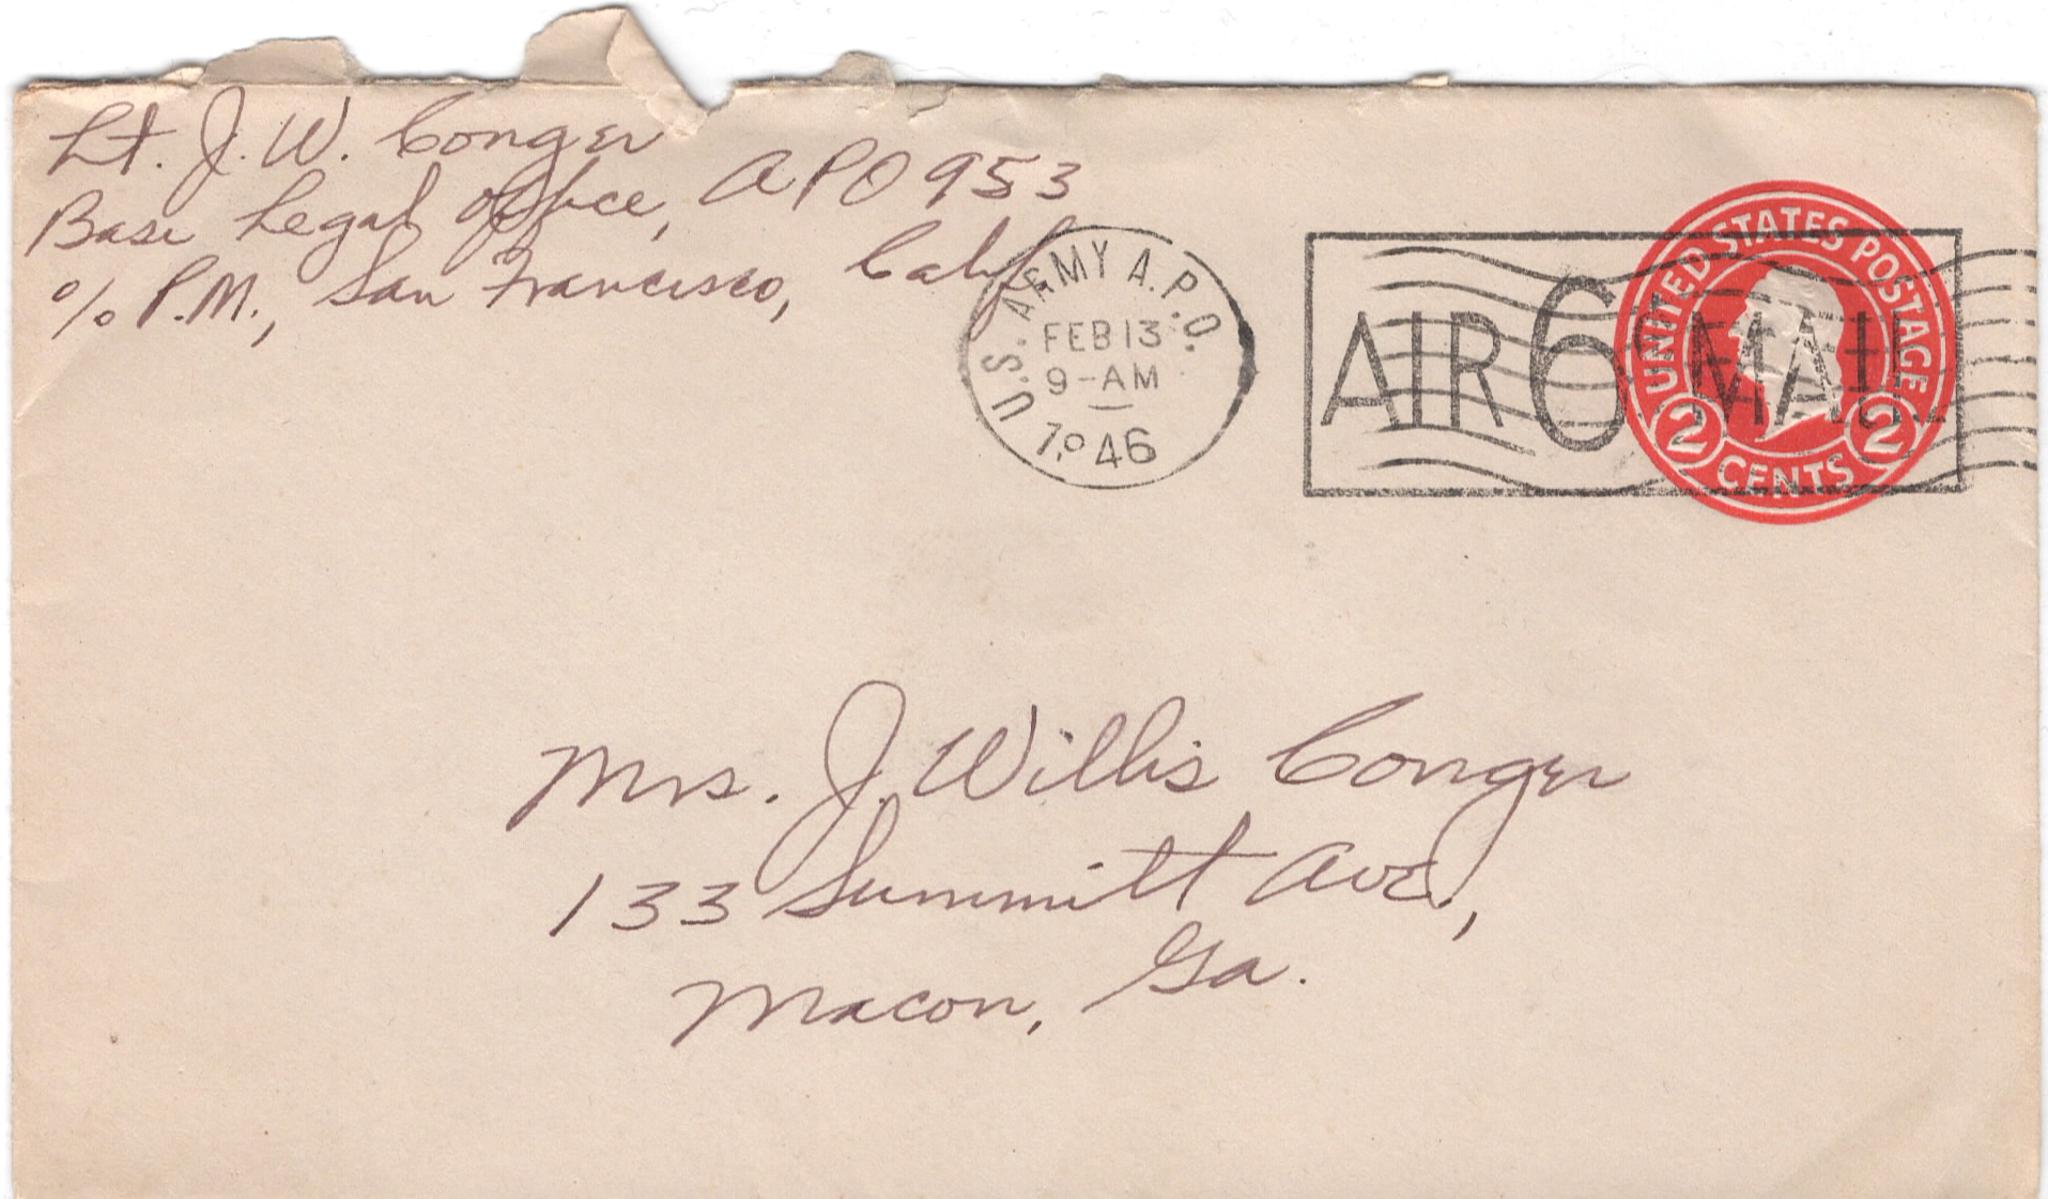 Lt. J. W. Conger
Base Legal Office, APO 953
c/o P.M., San Francisco, Calif
U.S. ARMY A.P.O.
FEB 13
9-AM
1946
AIR 6¢ MAIL
UNITED STATES POSTAGE
2 CENTS 2
Mrs. J. Willis Conger
133 Summitt Ave.,
Macon, Ga.